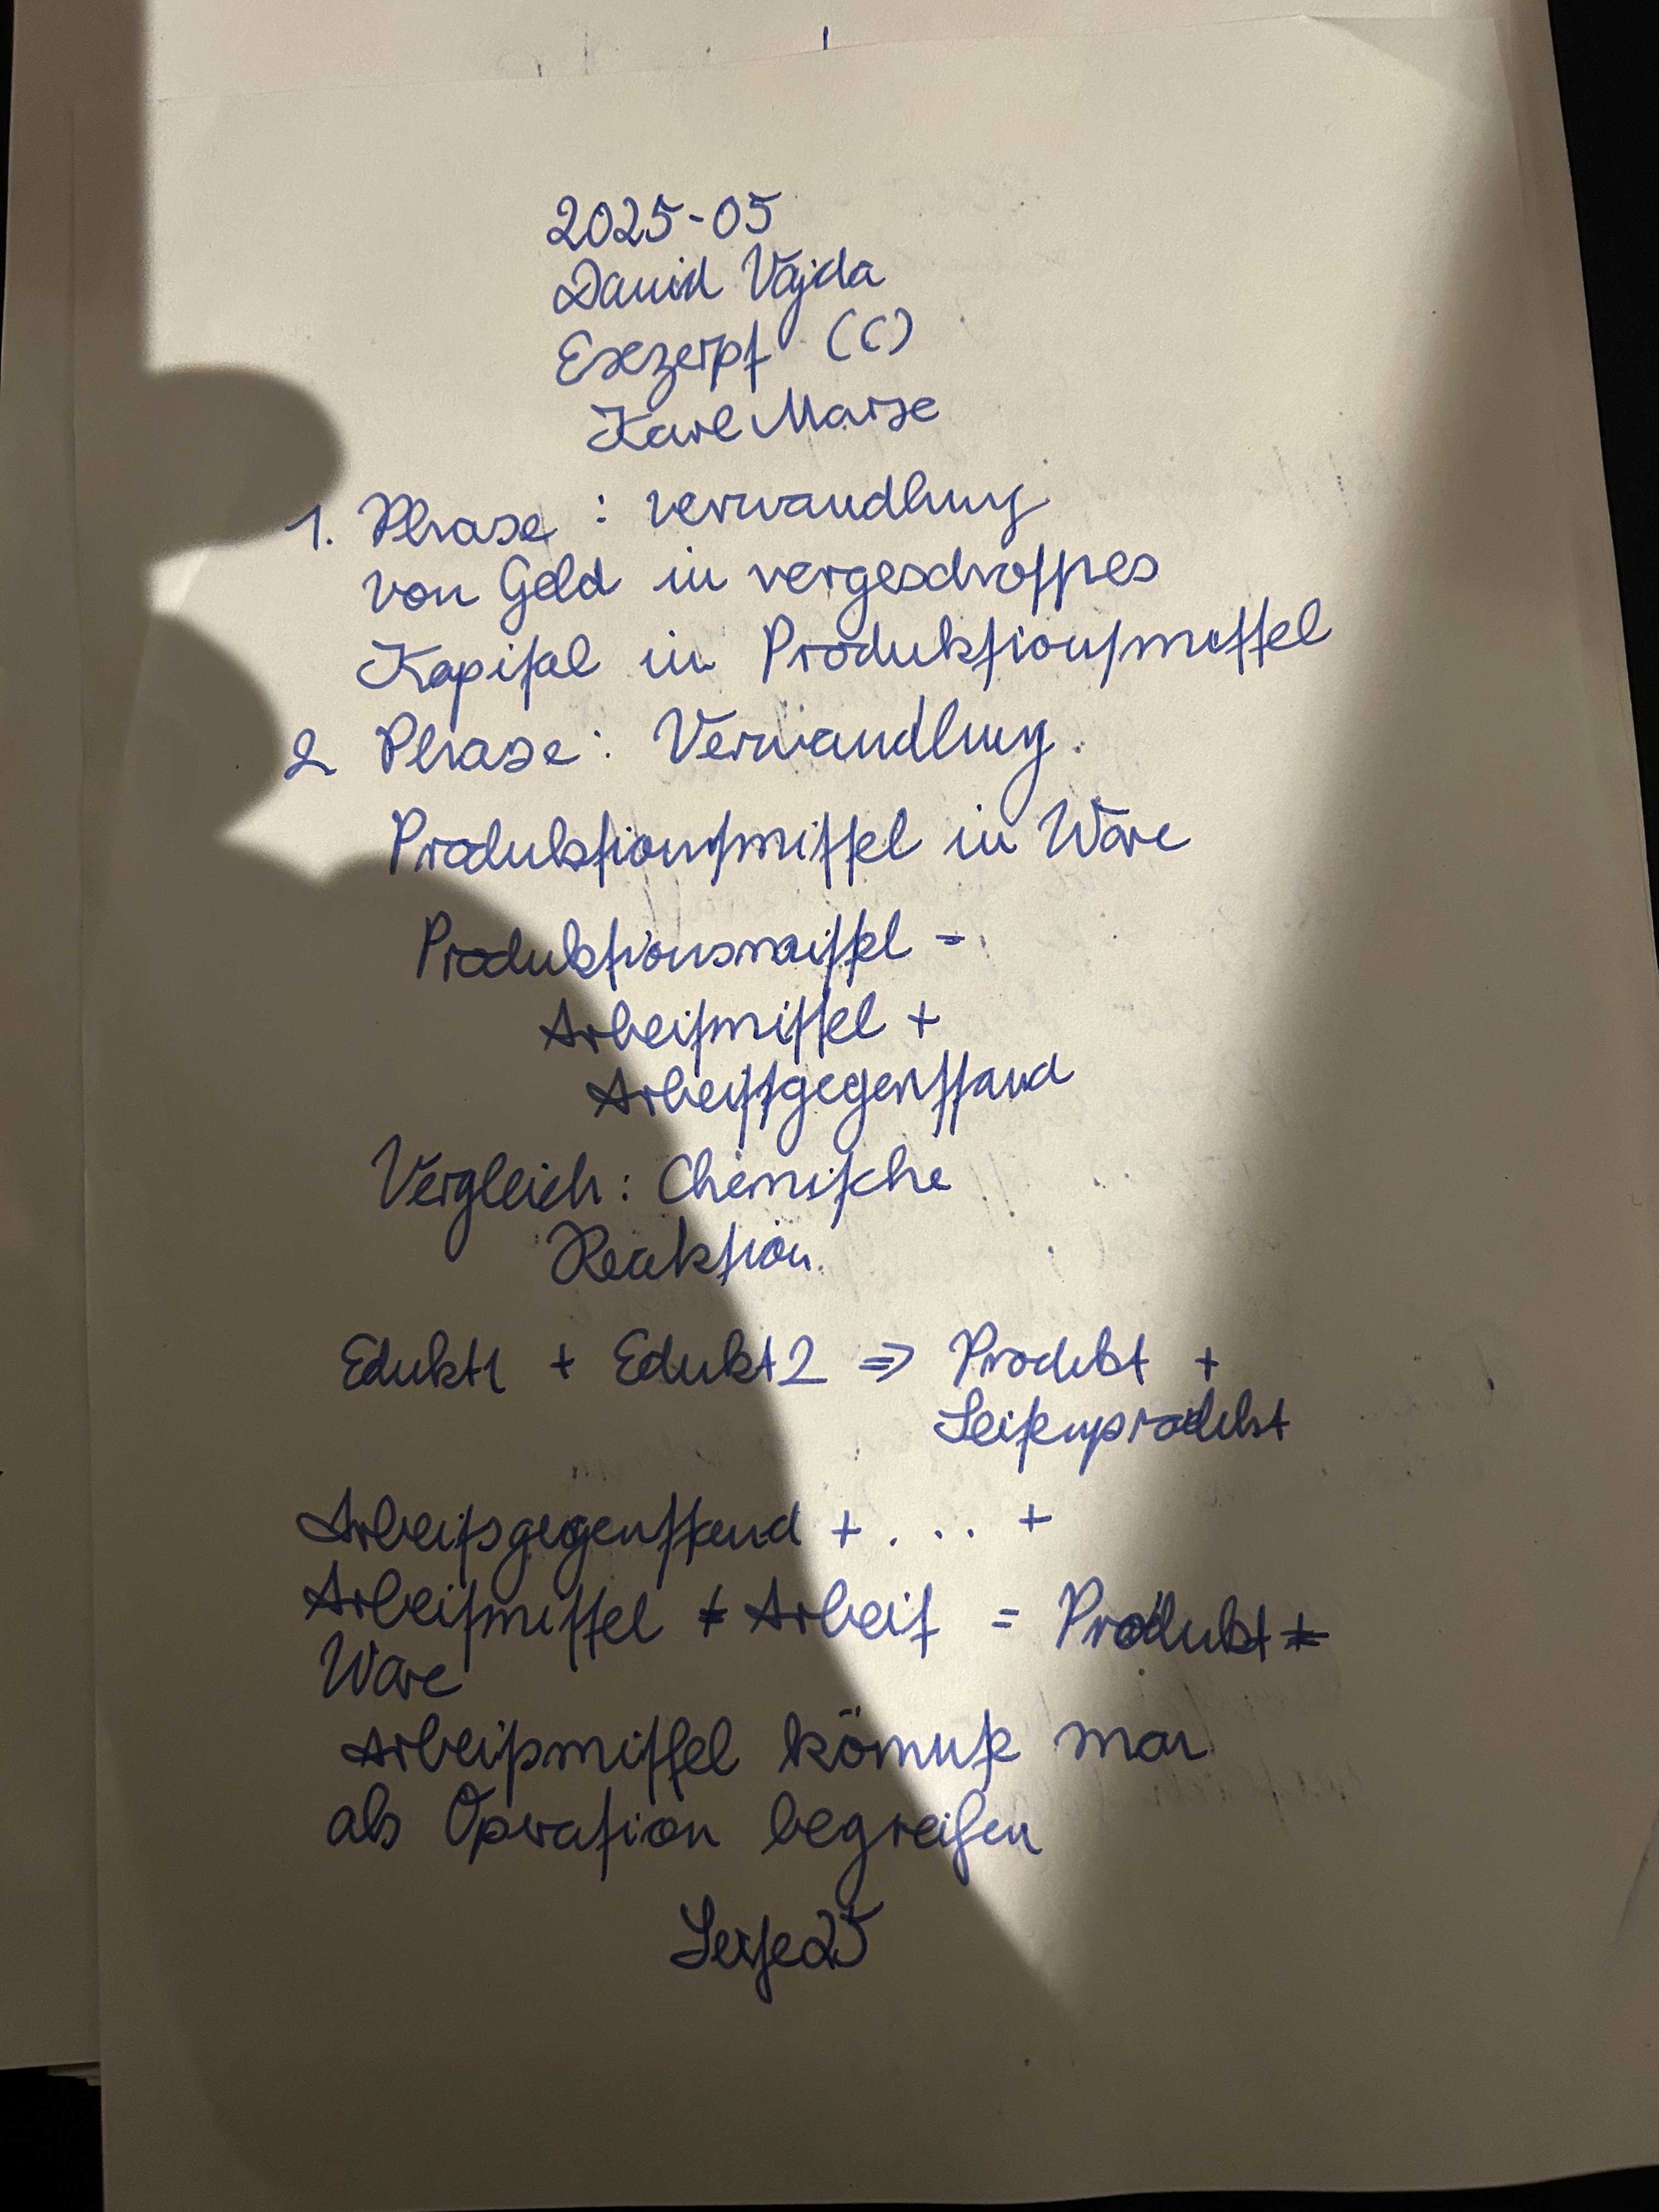 2025-05
David Vajda
Exzerpt (C)
Karl Marx
1. Phrase : verwandlung
von Geld in vorgeschossenes
Kapital in Produktionsmittel
2 Phrase : Verwandlung
Produktionsmittel in Ware
Produktionsmittel =
Arbeitsmittel +
Arbeitsgegenstand
Vergleich : Chemische
Reaktion
Edukt1 + Edukt2 ⇒ Produkt +
Arbeitsgegenstand + ... +
Arbeitsmittel + Arbeit = Produkt +
Ware
Arbeitsmittel könnte man
als Operation begreifen